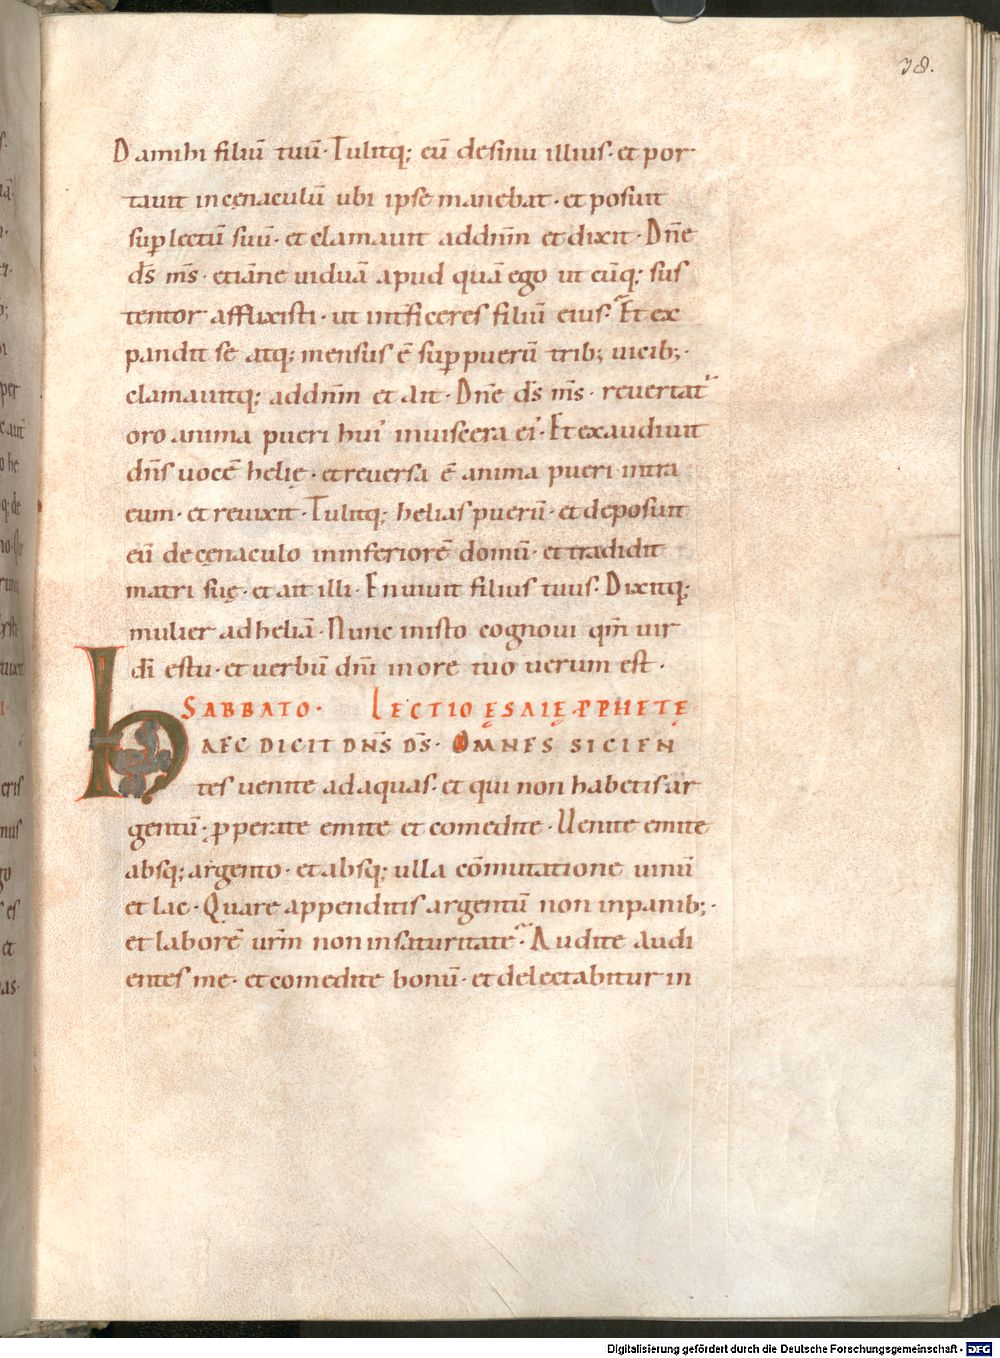 38.
Da mihi filiū tuū· Tulitq; eū de sinu illius· et por
tauit in cęnaculū ubi ipse manebat· et posuit
sup lectū suū· et clamauit ad dnm̄ et dixit· Dn̄e
ds̄ ms̄· etiāne uiduā apud quā ego ut cūq; sus
tentor afflixisti· ut int̄ficeres filiū eius· Et ex
pandit se atq; mensus ē sup puerū trib; uicib;·
clamauitq; ad dnm̄ et ait· Dn̄e ds̄ ms̄· reuertat᷑
oro anima pueri hui᾽ in uiscera ei᾽· Et exaudiuit
dn̄s uocē helię· et reuersa ē anima pueri intra
eum· et reuixit· Tulitq; helias puerū· et deposuit
eū de cęnaculo in inferiorē domū· et tradidit
matri suę· et ait illi· En uiuit filius tuus· Dixitq;
mulier ad heliā· Nunc in isto cognoui qm̄ uir
dī es tu· et uerbū dnī in ore tuo uerum est·
SABBATO· LECTIO ĘSAIĘ PPHETĘ
HAEC DICIT DN̄S DS̄· OMNES SICIEN
tes uenite ad aquas· et qui non habetis ar
gentū· pperate emite et comedite· Uenite emite
absq; argento· et absq; ulla cōmutatione uinū
et lac· Quare appenditis argentū non in panib;·
et laborē urm̄ non in saturitate· Audite audi
entes me· et comedite bonū· et delectabitur in
Digitalisierung gefördert durch die Deutsche Forschungsgemeinschaft - DFG